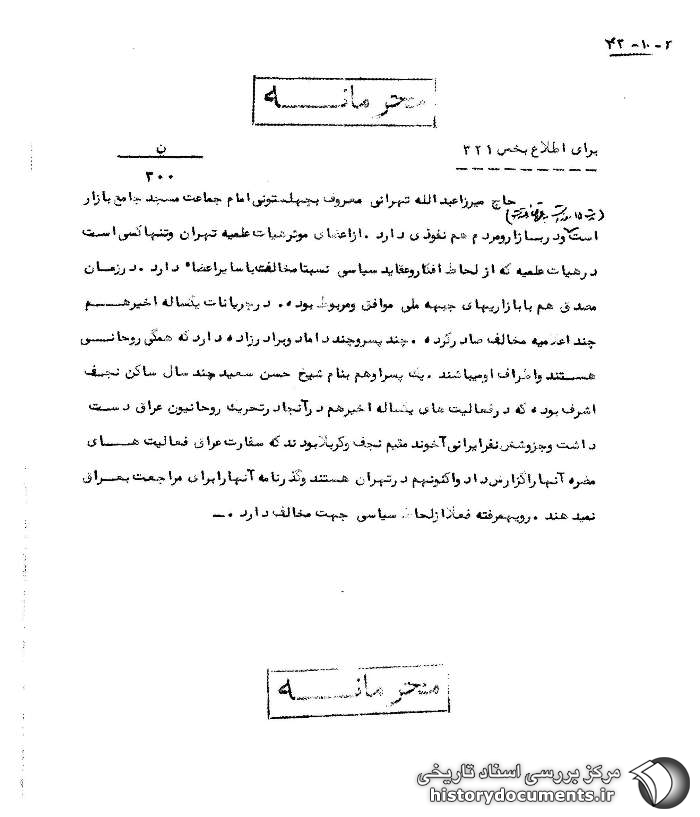 ۴۲-۱۰-۲
محرمانه
برای اطلاع بخش ۳۲۱
ن
۳۰۰
حاج میرزاعبدالله تهرانی معروف بچهلستونی امام جماعت مسجد جامع بازار
است ودربازارومردم هم نفوذی دارد . ازاعضای موثرهیات علمیه تهران وتنهاکسی است
درهیات علمیه که از لحاظ افکاروعقاید سیاسی نسبتا مخالفت باسایراعضاء دارد . درزمان
مصدق هم بابازاریهای جبهه ملی موافق ومربوط بوده . درجریانات یکساله اخیرهم
چند اعلامیه مخالف صادرکرده . چند پسروچند داماد وبرادرزاده دارد که همگی روحانی
هستند واطراف اومیباشند . یک پسراوهم بنام شیخ حسن سعید چند سال ساکن نجف
اشرف بوده که درفعالیت های یکساله اخیرهم درآنجا درتحریک روحانیون عراق دست
داشت وجزوشش نفرایرانی آخوند مقیم نجف وکربلا بودند که سفارت عراق فعالیت های
مضره آنهاراگزارش داد واکنونهم درتهران هستند وگذرنامه آنهارابرای مراجعت بعراق
نمیدهند . رویهمرفته فعلا ازلحاظ سیاسی جهت مخالف دارد .
محرمانه
مرکز بررسی اسناد تاریخی
historydocuments.ir